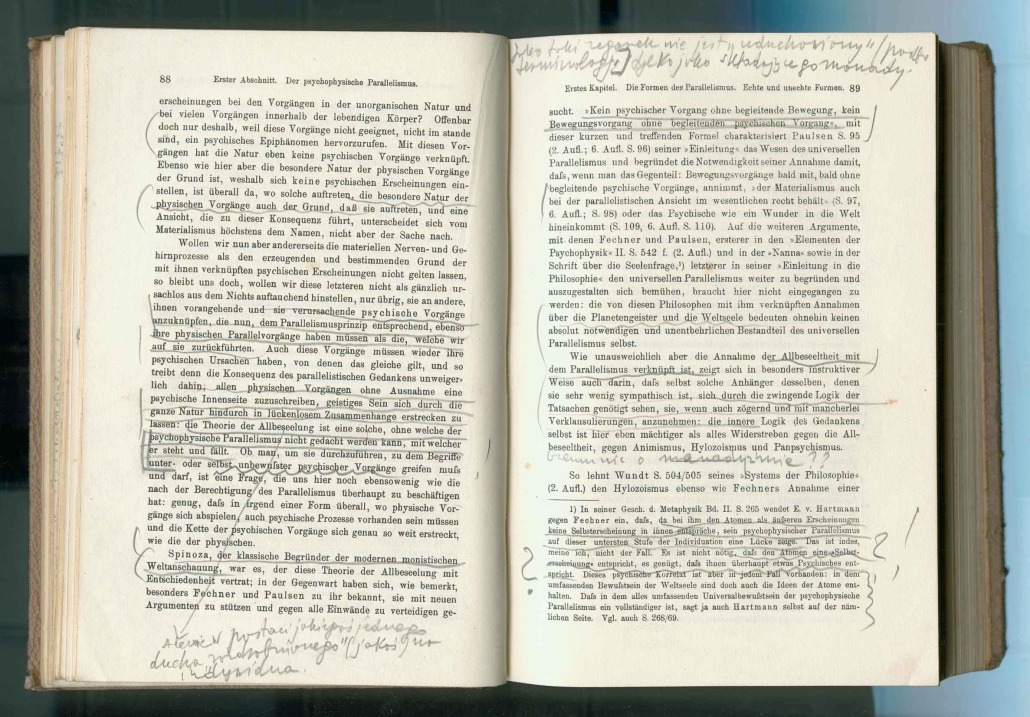 88 Erster Abschnitt. Der psychophysische Parallelismus.
erscheinungen bei den Vorgängen in der unorganischen Natur und
bei vielen Vorgängen innerhalb der lebendigen Körper? Offenbar
doch nur deshalb, weil diese Vorgänge nicht geeignet, nicht im stande
sind, ein psychisches Epiphänomen hervorzurufen. Mit diesen Vor-
gängen hat die Natur eben keine psychischen Vorgänge verknüpft.
Ebenso wie hier aber die besondere Natur der physischen Vorgänge
der Grund ist, weshalb sich keine psychischen Erscheinungen ein-
stellen, ist überall da, wo solche auftreten, die besondere Natur der
physischen Vorgänge auch der Grund, daß sie auftreten, und eine
Ansicht, die zu dieser Konsequenz führt, unterscheidet sich vom
Materialismus höchstens dem Namen, nicht aber der Sache nach.
Wollen wir nun aber andererseits die materiellen Nerven- und Ge-
hirnprozesse als den erzeugenden und bestimmenden Grund der
mit ihnen verknüpften psychischen Erscheinungen nicht gelten lassen,
so bleibt uns doch, wollen wir diese letzteren nicht als gänzlich ur-
sachlos aus dem Nichts auftauchend hinstellen, nur übrig, sie an andere,
ihnen vorangehende und sie verursachende psychische Vorgänge
anzuknüpfen, die nun, dem Parallelismusprinzip entsprechend, ebenso
ihre physischen Parallelvorgänge haben müssen als die, welche wir
auf sie zurückführten. Auch diese Vorgänge müssen wieder ihre
psychischen Ursachen haben, von denen das gleiche gilt, und so
treibt denn die Konsequenz des parallelistischen Gedankens unweiger-
lich dahin, allen physischen Vorgängen ohne Ausnahme eine
psychische Innenseite zuzuschreiben, geistiges Sein sich durch die
ganze Natur hindurch in lückenlosem Zusammenhange erstrecken zu
lassen: die Theorie der Allbeseelung ist eine solche, ohne welche der
psychophysische Parallelismus nicht gedacht werden kann, mit welcher
er steht und fällt. Ob man, um sie durchzuführen, zu dem Begriffe
unter- oder selbst unbewußter psychischer Vorgänge greifen muß
und darf, ist eine Frage, die uns hier noch ebensowenig wie die
nach der Berechtigung des Parallelismus überhaupt zu beschäftigen
hat: genug, daß in irgend einer Form überall, wo physische Vor-
gänge sich abspielen, auch psychische Prozesse vorhanden sein müssen
und die Kette der psychischen Vorgänge sich genau so weit erstreckt,
wie die der physischen.
Spinoza, der klassische Begründer der modernen monistischen
Weltanschauung, war es, der diese Theorie der Allbeseelung mit
Entschiedenheit vertrat; in der Gegenwart haben sich, wie bemerkt,
besonders Fechner und Paulsen zu ihr bekannt, sie mit neuen
Argumenten zu stützen und gegen alle Einwände zu verteidigen ge-
w postaci jakiegoś jednego
ducha
indywidua.
jako taki zegarek nie jest „uduchowiony"
terminologji) tylko jako składające go monady.
Erstes Kapitel. Die Formen des Parallelismus. Echte und unechte Formen. 89
sucht. »Kein psychischer Vorgang ohne begleitende Bewegung, kein
Bewegungsvorgang ohne begleitenden psychischen Vorgang«, mit
dieser kurzen und treffenden Formel charakterisiert Paulsen S. 95
(2. Aufl.; 6. Aufl. S. 96) seiner »Einleitung« das Wesen des universellen
Parallelismus und begründet die Notwendigkeit seiner Annahme damit,
daß, wenn man das Gegenteil: Bewegungsvorgänge bald mit, bald ohne
begleitende psychische Vorgänge, annimmt, »der Materialismus auch
bei der parallelistischen Ansicht im wesentlichen recht behält« (S. 97,
6. Aufl.; S. 98) oder das Psychische wie ein Wunder in die Welt
hineinkommt (S. 109, 6. Aufl. S. 110). Auf die weiteren Argumente,
mit denen Fechner und Paulsen, ersterer in den »Elementen der
Psychophysik« II. S. 542 f. (2. Aufl.) und in der »Nanna« sowie in der
Schrift über die Seelenfrage,¹) letzterer in seiner »Einleitung in die
Philosophie« den universellen Parallelismus weiter zu begründen und
auszugestalten sich bemühen, braucht hier nicht eingegangen zu
werden: die von diesen Philosophen mit ihm verknüpften Annahmen
über die Planetengeister und die Weltseele bedeuten ohnehin keinen
absolut notwendigen und unentbehrlichen Bestandteil des universellen
Parallelismus selbst.
Wie unausweichlich aber die Annahme der Allbeseeltheit mit
dem Parallelismus verknüpft ist, zeigt sich in besonders instruktiver
Weise auch darin, daß selbst solche Anhänger desselben, denen
sie sehr wenig sympathisch ist, sich durch die zwingende Logik der
Tatsachen genötigt sehen, sie, wenn auch zögernd und mit mancherlei
Verklausulierungen, anzunehmen: die innere Logik des Gedankens
selbst ist hier eben mächtiger als alles Widerstreben gegen die All-
beseeltheit, gegen Animismus, Hylozoismus und Panpsychismus.
So lehnt Wundt S. 504/505 seines »Systems der Philosophie«
(2. Aufl.) den Hylozoismus ebenso wie Fechners Annahme einer
1) In seiner Gesch. d. Metaphysik Bd. II S. 265 wendet E. v. Hartmann
gegen Fechner ein, daß, da bei ihm den Atomen als äußeren Erscheinungen
keine Selbsterscheinung in ihnen entspräche, sein psychophysischer Parallelismus
auf dieser untersten Stufe der Individuation eine Lücke zeige. Das ist indes,
meine ich, nicht der Fall. Es ist nicht nötig, daß den Atomen eine »Selbst-
erscheinung« entspricht, es genügt, daß ihnen überhaupt etwas Psychisches ent-
spricht. Dieses psychische Korrelat ist aber in jedem Fall vorhanden: in dem
umfassenden Bewußtsein der Weltseele sind doch auch die Ideen der Atome ent-
halten. Daß in dem alles umfassenden Universalbewußtsein der psychophysische
Parallelismus ein vollständiger ist, sagt ja auch Hartmann selbst auf der näm-
lichen Seite. Vgl. auch S. 268/69.